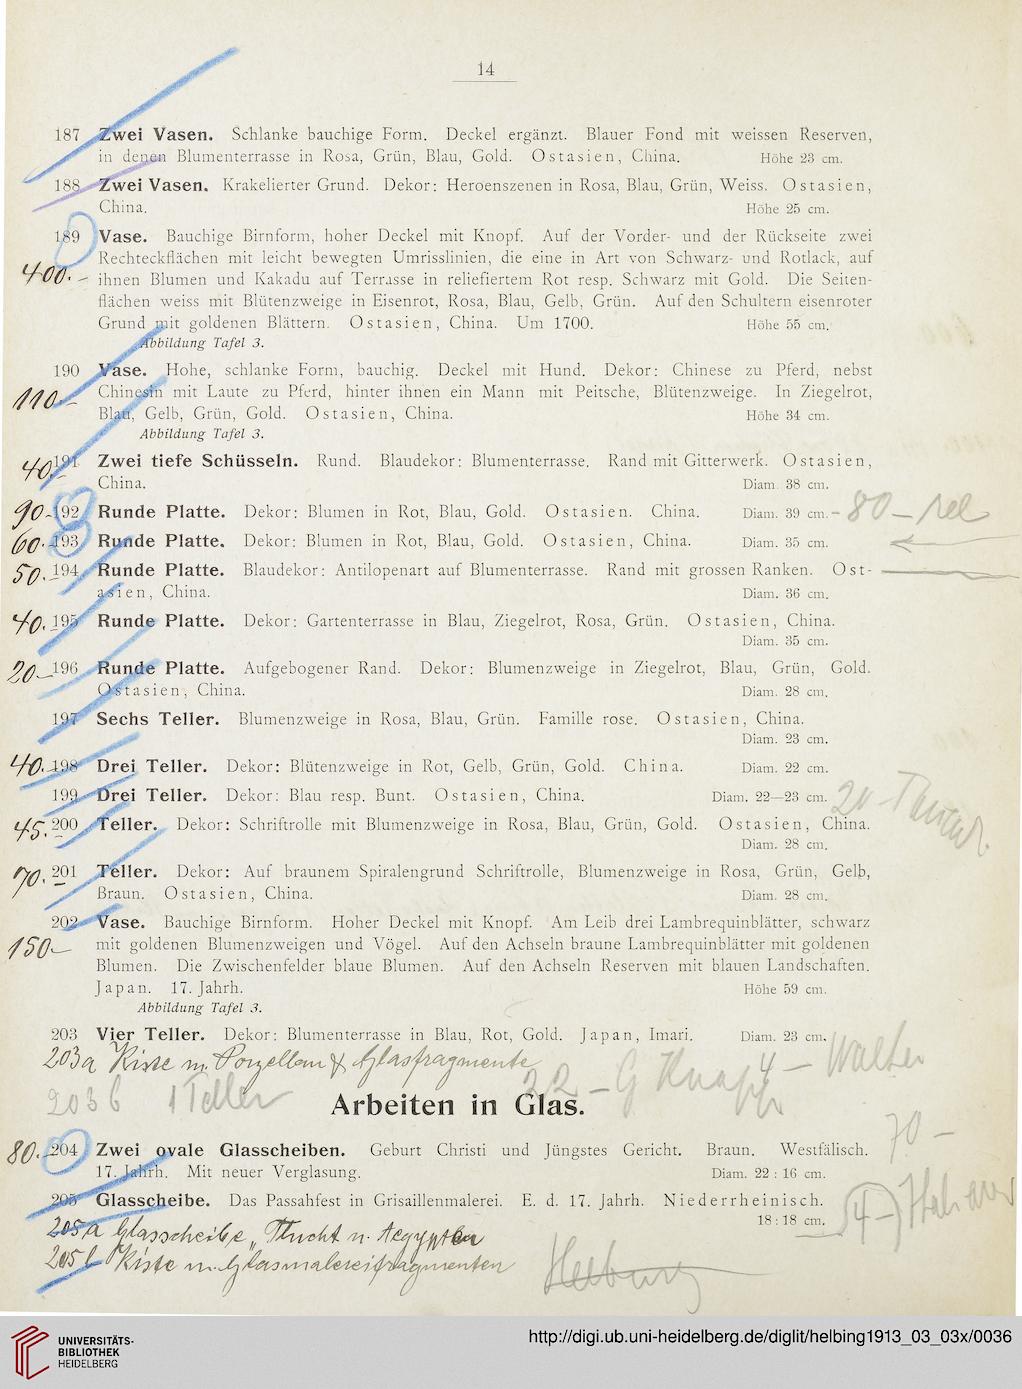 14
187 Zwei Vasen. Schlanke bauchige Form. Deckel ergänzt. Blauer Fond mit weissen Reserven,
in denen Blumenterrasse in Rosa, Grün, Blau, Gold. Ostasien, China. Höhe 23 cm.
188 Zwei Vasen. Krakelierter Grund. Dekor: Heroenszenen in Rosa, Blau, Grün, Weiss. Ostasien,
China. Höhe 25 cm.
189 Vase. Bauchige Birnform, hoher Deckel mit Knopf. Auf der Vorder- und der Rückseite zwei
Rechteckflächen mit leicht bewegten Umrisslinien, die eine in Art von Schwarz- und Rotlack, auf
400.- ihnen Blumen und Kakadu auf Terrasse in reliefiertem Rot resp. Schwarz mit Gold. Die Seiten-
flächen weiss mit Blütenzweige in Eisenrot, Rosa, Blau, Gelb, Grün. Auf den Schultern eisenroter
Grund mit goldenen Blättern. Ostasien, China. Um 1700. Höhe 55 cm.
Abbildung Tafel 3.
190 Vase. Hohe, schlanke Form, bauchig. Deckel mit Hund. Dekor: Chinese zu Pferd, nebst
110.- Chinesin mit Laute zu Pferd, hinter ihnen ein Mann mit Peitsche, Blütenzweige. In Ziegelrot,
Blau, Gelb, Grün, Gold. Ostasien, China. Höhe 34 cm.
Abbildung Tafel 3.
40.- 191 Zwei tiefe Schüsseln. Rund. Blaudekor: Blumenterrasse. Rand mit Gitterwerk. Ostasien,
China. Diam. 38 cm.
90.- 192 Runde Platte. Dekor: Blumen in Rot, Blau, Gold. Ostasien. China. Diam. 39 cm. - 80 -
60.- 193 Runde Platte. Dekor: Blumen in Rot, Blau, Gold. Ostasien, China. Diam. 35 cm.
50.- 194 Runde Platte. Blaudekor: Antilopenart auf Blumenterrasse. Rand mit grossen Ranken. Ost-
asien, China. Diam. 36 cm.
40.- 195 Runde Platte. Dekor: Gartenterrasse in Blau, Ziegelrot, Rosa, Grün. Ostasien, China.
Diam. 35 cm.
20- 196 Runde Platte. Aufgebogener Rand. Dekor: Blumenzweige in Ziegelrot, Blau, Grün, Gold.
Ostasien, China. Diam. 28 cm.
197 Sechs Teller. Blumenzweige in Rosa, Blau, Grün. Famille rose. Ostasien, China.
Diam. 23 cm.
40.- 198 Drei Teller. Dekor: Blütenzweige in Rot, Gelb, Grün, Gold. China. Diam. 22 cm.
199 Drei Teller. Dekor: Blau resp. Bunt. Ostasien, China. Diam. 22—23 cm. 20 -
45.- 200 Teller. Dekor: Schriftrolle mit Blumenzweige in Rosa, Blau, Grün, Gold. Ostasien, China.
Diam. 28 cm.
70.- 201 Teller. Dekor: Auf braunem Spiralengrund Schriftrolle, Blumenzweige in Rosa, Grün, Gelb,
Braun. Ostasien, China. Diam. 28 cm.
202 Vase. Bauchige Birnform. Hoher Deckel mit Knopf. Am Leib drei Lambrequinblätter, schwarz
150- mit goldenen Blumenzweigen und Vögel. Auf den Achseln braune Lambrequinblätter mit goldenen
Blumen. Die Zwischenfelder blaue Blumen. Auf den Achseln Reserven mit blauen Landschaften.
Japan. 17. Jahrh. Höhe 59 cm.
Abbildung Tafel 3.
203 Vier Teller. Dekor: Blumenterrasse in Blau, Rot, Gold. Japan, Imari. Diam. 23 cm.
203a Kiste m. Porzellan & Glasfragmente 4 - Walter
203b 1 Teller 22 - G Knapp
Arbeiten in Glas.
80.- 204 Zwei ovale Glasscheiben. Geburt Christi und Jüngstes Gericht. Braun. Westfälisch. 70 -
17. Jahrh. Mit neuer Verglasung. Diam. 22 : 16 cm.
205 Glasscheibe. Das Passahfest in Grisaillenmalerei. E. d. 17. Jahrh. Niederrheinisch.
18 : 18 cm. 4 -
205a Glasscheibe "Flucht n. Aegypten
205b Kiste m. Glasmalereifragmenten
Helbing
UNIVERSITÄTS-
BIBLIOTHEK
HEIDELBERG
http://digi.ub.uni-heidelberg.de/diglit/helbing1913_03_03x/0036